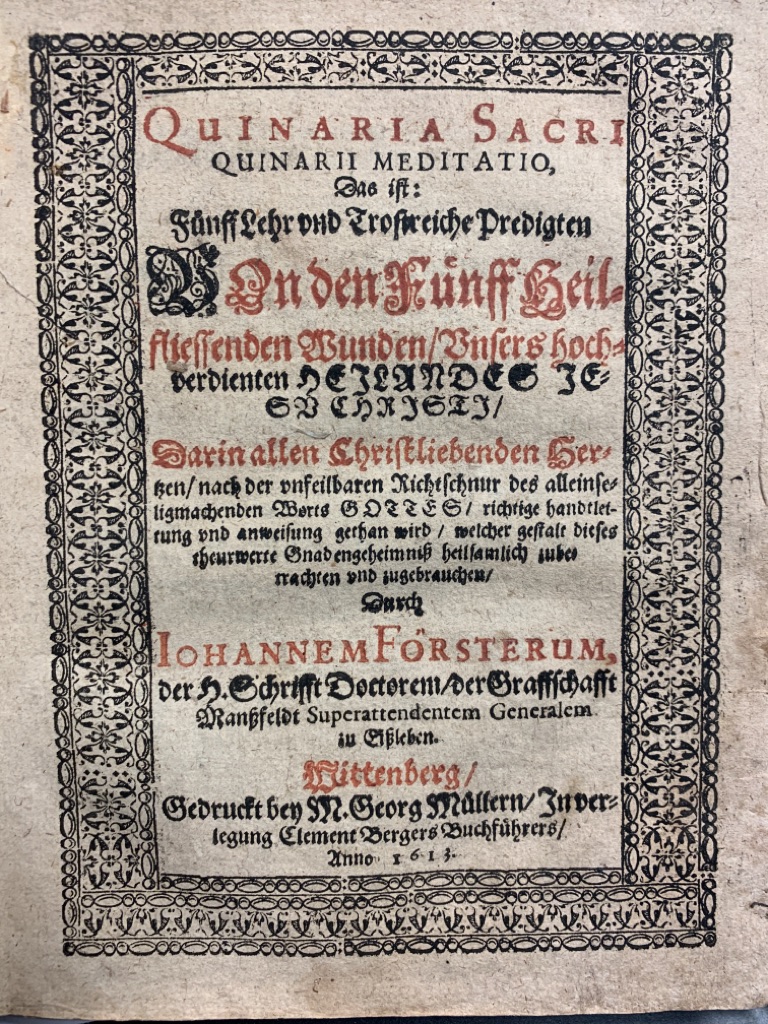 QUINARIA SACRI
QUINARII MEDITATIO,
Das ist:
Fünff Lehr vnd Trostreiche Predigten
VOn den Fünff Heil-
fliessenden Wunden/ Vnsers hoch-
verdienten HEILANDES JE-
SV CHRISTI/
Darin allen Christliebenden Her-
tzen/ nach der vnfeilbaren Richtschnur des alleinse-
ligmachenden Worts GOTTES/ richtige handtlei-
tung vnd anweisung gethan wird / welcher gestalt dieses
theurwerte Gnadengeheimniß heilsamlich zube-
trachten vnd zugebrauchen/
Durch
IOHANNEM FÖRSTERUM,
der H. Schrifft Doctorem/ der Graffschafft
Manßfeldt Superattendentem Generalem
zu Eißleben.
Wittenberg/
Gedruckt bey M. Georg Müllern/ In ver-
legung Clement Bergers Buchführers/
Anno 1613.